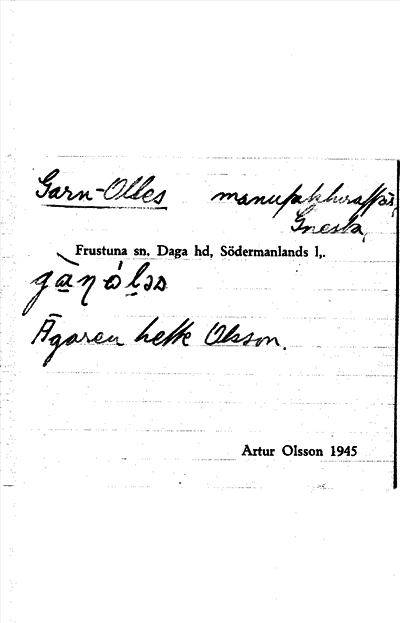 Garn-Olles manufakturaffär,
Gnesta,
Frustuna sn, Daga hd, Södermanlands l,.
Ägaren hette Olsson.
Artur Olsson 1945